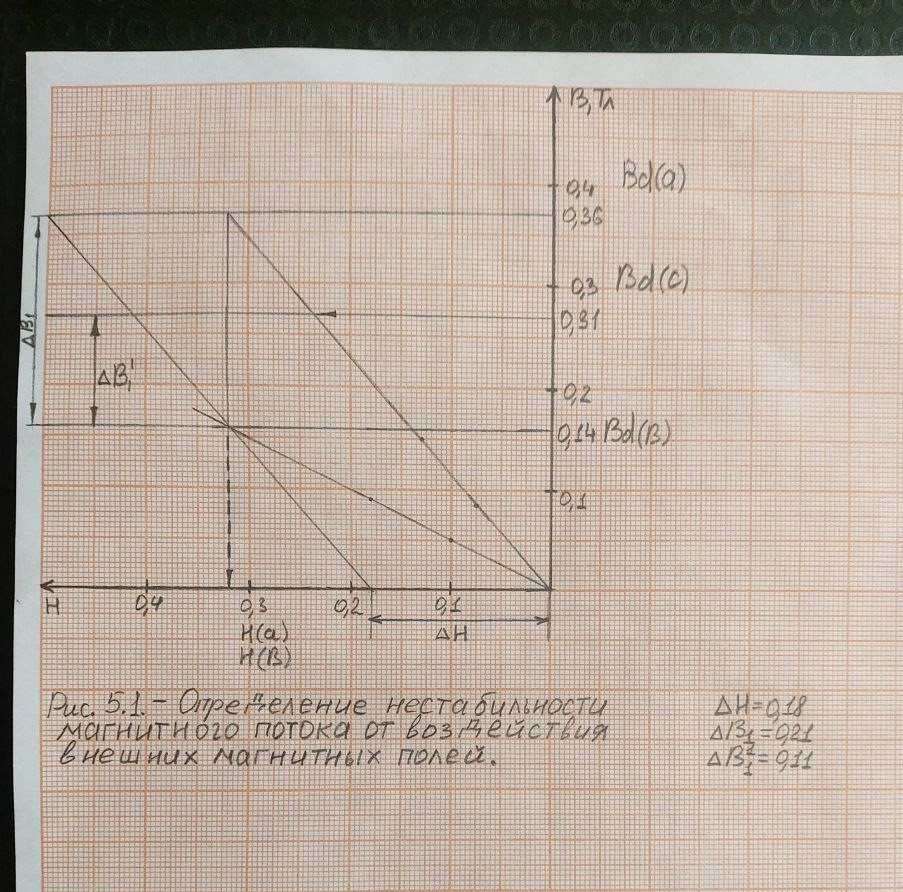 B, Тл
0,4 Bd(a)
0,36
0,3 Bd(c)
0,31
ΔB₁
ΔB₁'
0,2
0,14 Bd(B)
0,1
H 0,4 0,3 0,2 0,1
H(a)
ΔH
H(B)
Рис. 5.1.- Определение нестабильности
магнитного потока от воздействия
внешних магнитных полей.
ΔH=0,18
ΔB₁=0,21
ΔB₁²=0,11